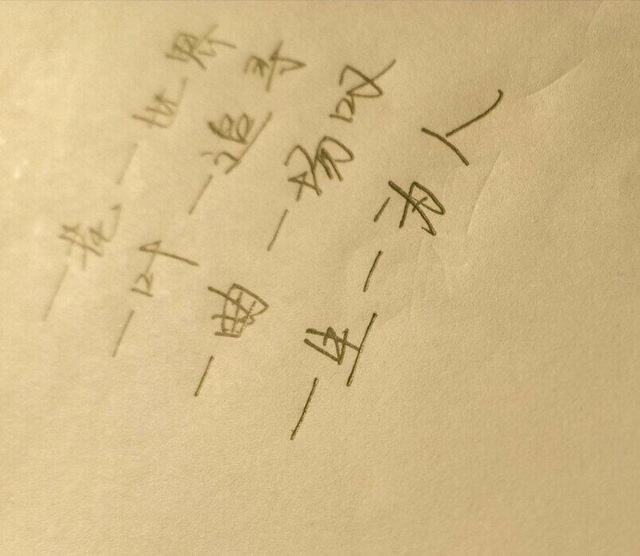 一花一世界
一叶一追寻
一曲一场叹
一生一为人